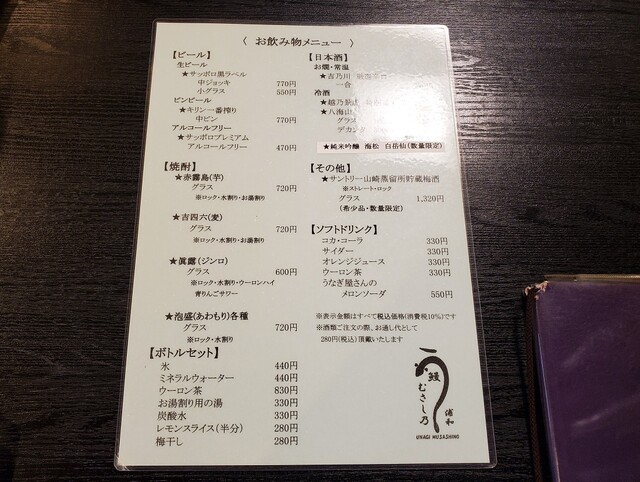 〈 お飲み物メニュー 〉
【ビール】
生ビール
★サッポロ黒ラベル
中ジョッキ 770円
小グラス 550円
ビンビール
★キリン一番搾り
中ビン 770円
アルコールフリー
★サッポロプレミアム
アルコールフリー 470円
【焼酎】
★赤霧島(芋)
グラス 720円
※ロック・水割り・お湯割り
★吉四六(麦)
グラス 720円
※ロック・水割り・お湯割り
★眞露(ジンロ)
グラス 600円
※ロック・水割り・ウーロンハイ
青りんごサワー
★泡盛(あわもり)各種
グラス 720円
※ロック・水割り
【ボトルセット】
氷 440円
ミネラルウォーター 440円
ウーロン茶 830円
お湯割り用の湯 330円
炭酸水 330円
レモンスライス(半分) 280円
梅干し 280円
【日本酒】
お燗・常温
★吉乃川
一合
冷酒
★越乃
★八海山
グラ
デカン
★純米吟醸 海松 白岳仙(数量限定)
【その他】
★サントリー山崎蒸留所貯蔵梅酒
※ストレート・ロック
グラス 1,320円
(希少品・数量限定)
【ソフトドリンク】
コカ・コーラ 330円
サイダー 330円
オレンジジュース 330円
ウーロン茶 330円
うなぎ屋さんの
メロンソーダ 550円
※表示金額はすべて税込価格(消費税10%)です
※酒類ご注文の際、お通し代として
280円(税込)頂戴いたします
鰻 むさし乃
浦和
UNAGI MUSASHINO